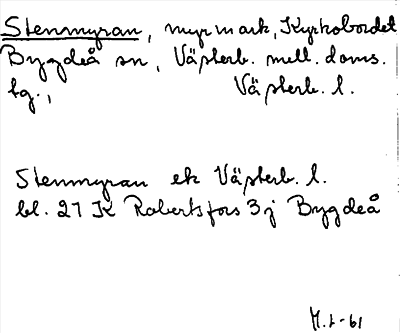 Stenmyran, myrmark, Kyrkobordet
Bygdeå sn, Västerb. mell. doms.
tg., Västerb. l.
Stenmyran ek Västerb. l.
bl. 21 K Robertsfors 3j Bygdeå
M.L-61